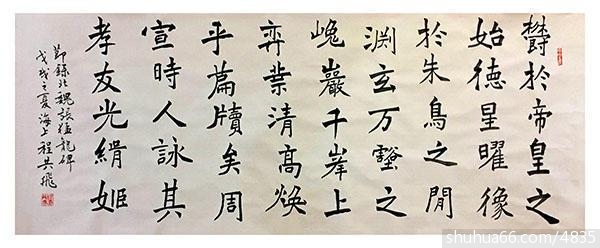 欝於帝皇之
始德星曜像
於朱鳥之閒
渊玄万壑之
嵬巖千峯上
弈業清高煥
乎篇牘矣周
宣時人詠其
孝友光緝姬
節錄北魏張猛龍碑
戊戌之夏海上程共飛
shuhua66.com/4835